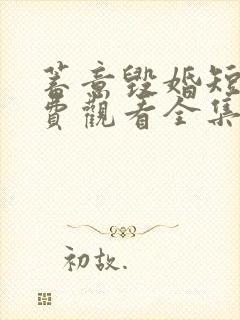 蓄意毀婚短
費觀看全集
初故.